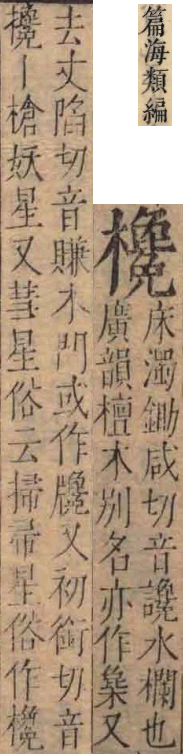 篇海類編
欃
床濁鋤咸切音讒水欄也
廣韻檀木別名亦作又
去丈陷切音賺木門或作又初銜切音
攙丨槍妖星又彗星俗云掃帚星俗作